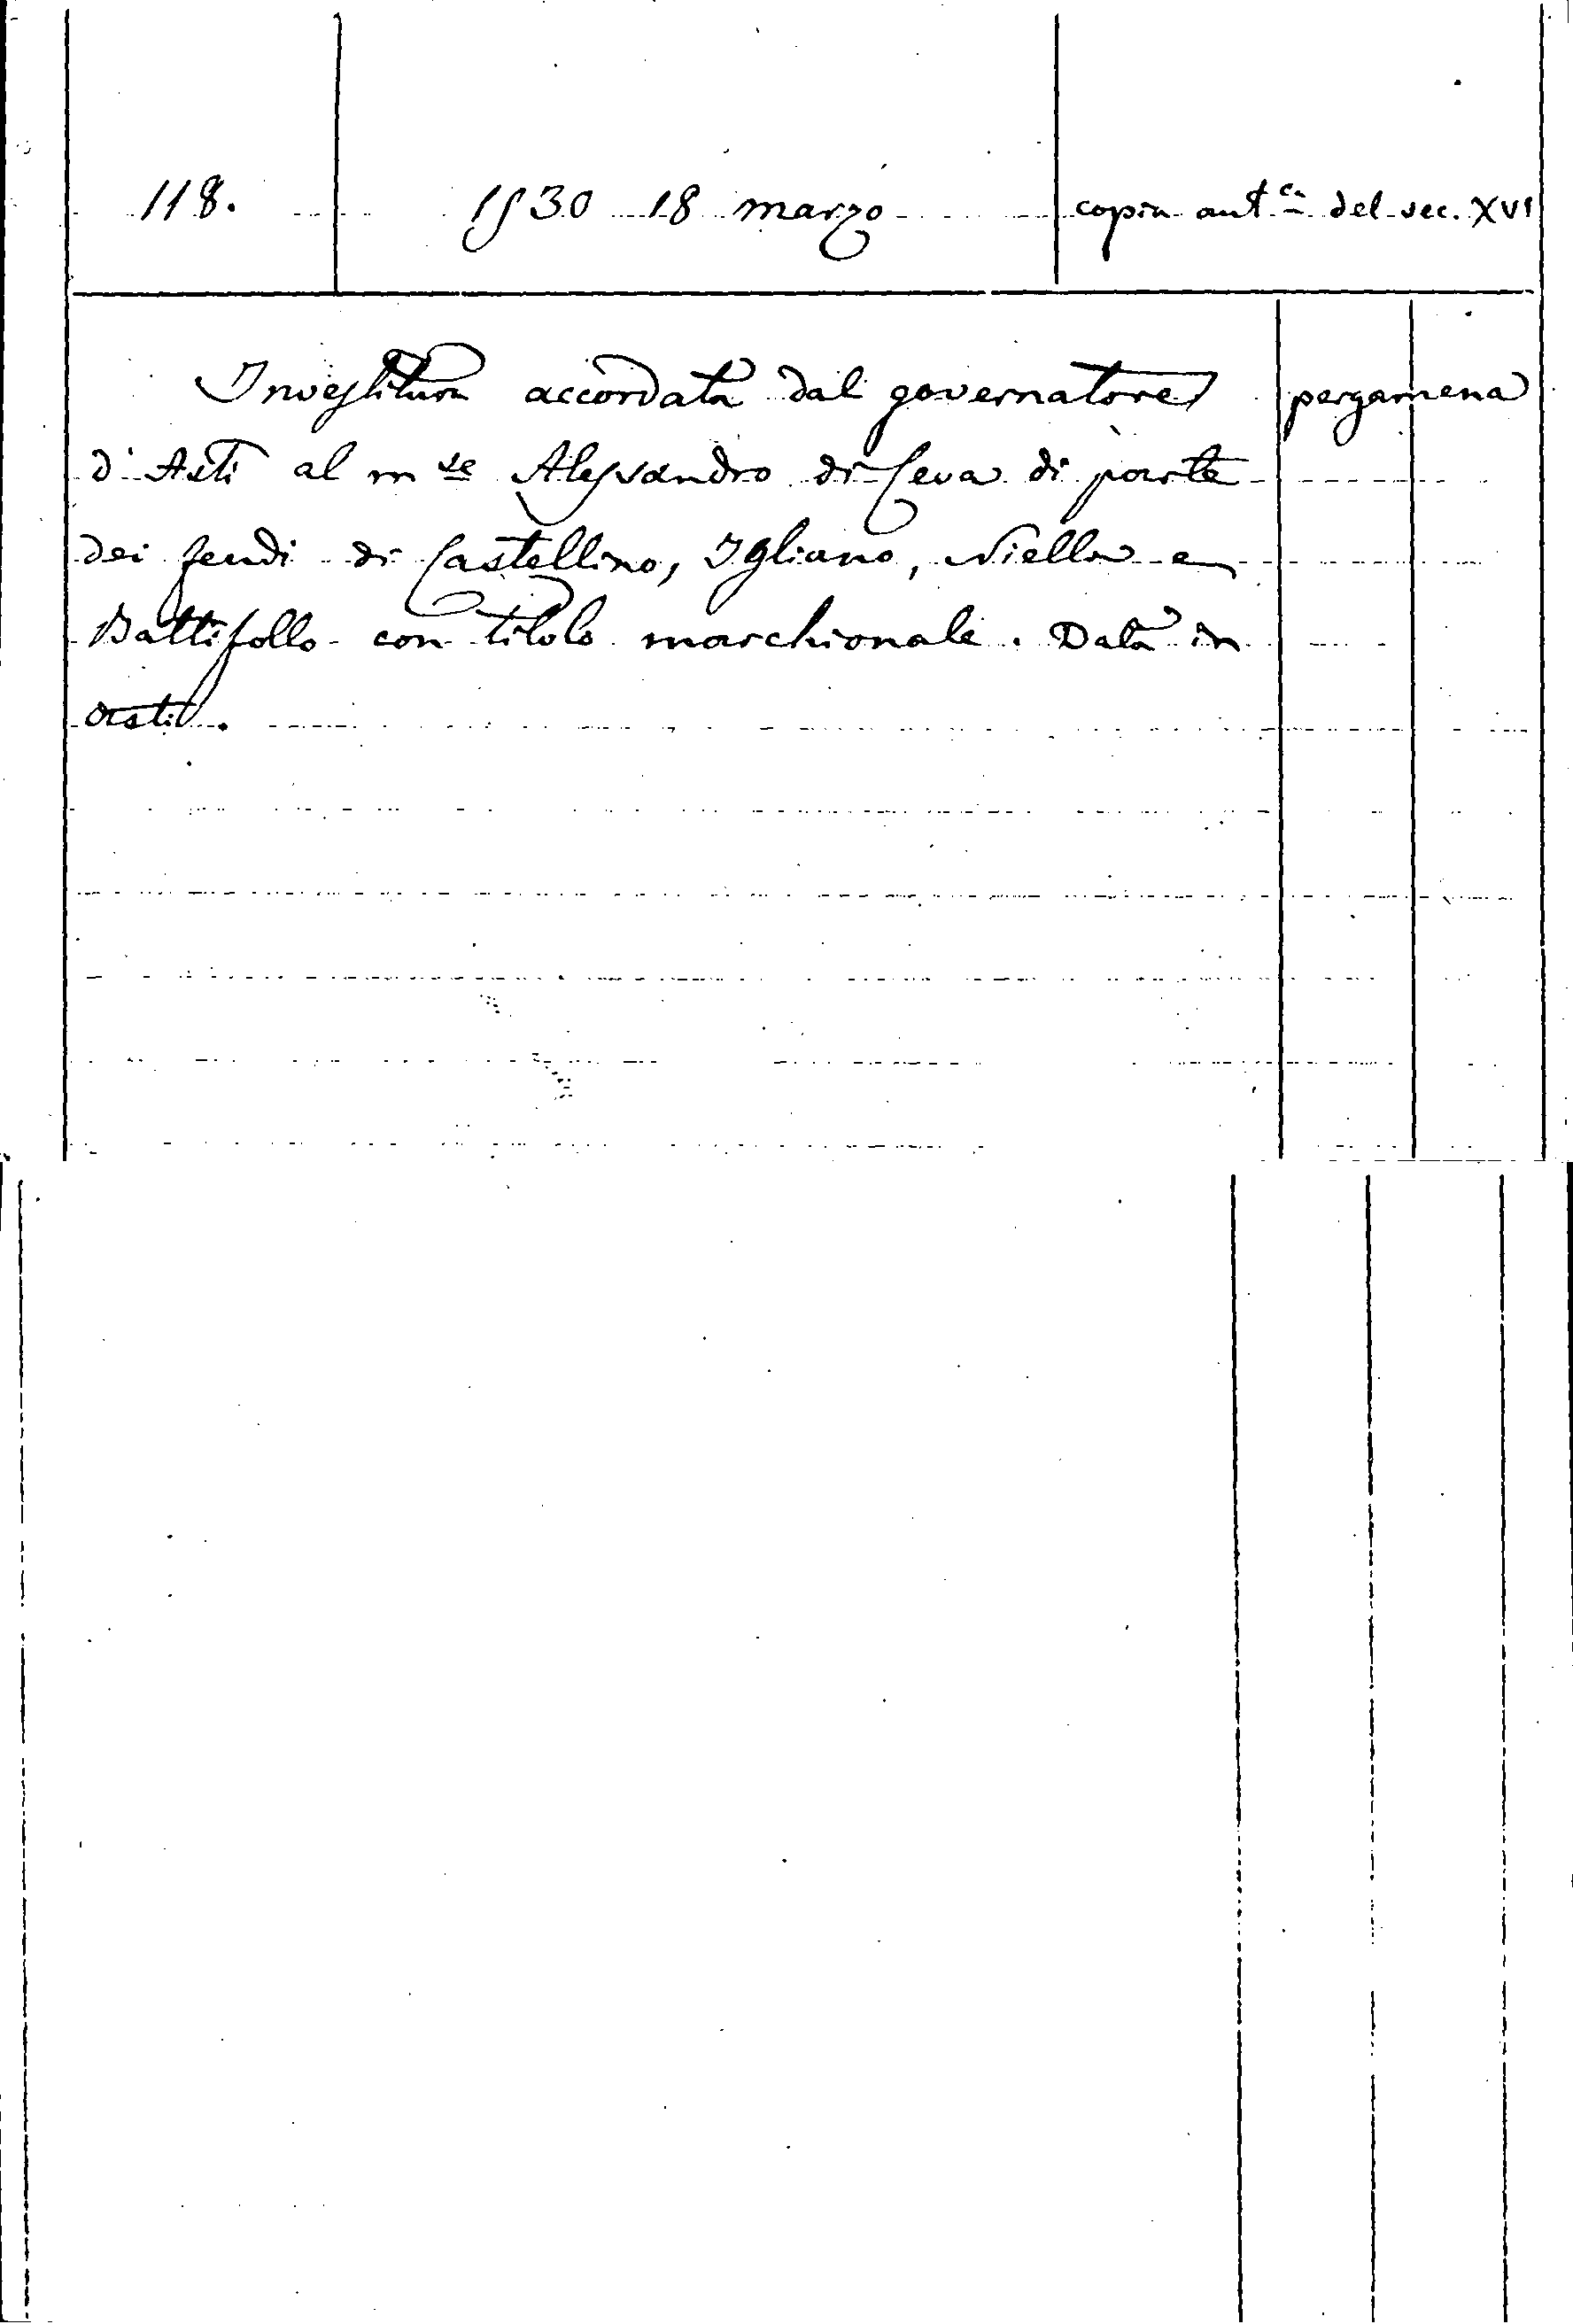 118. 1530 18 marzo copia aut.ca del sec. XVI
Investitura accordata dal governatore pergamena
d'Asti al m se Alessandro di Ceva di parte
dei feudi di Castellino, Igliano, Niella e
Battifollo con titolo marchionale. Data in
Asti.